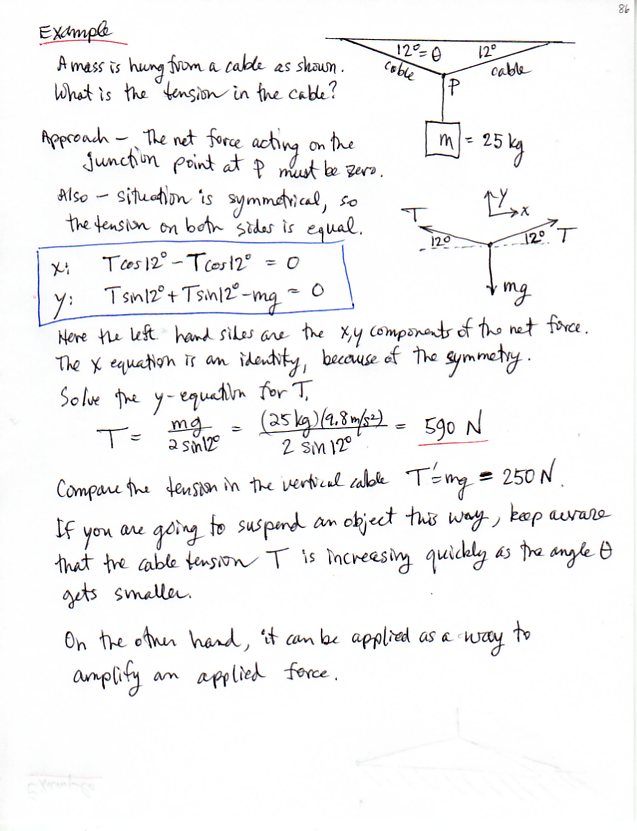 86
Example
12°= θ 12°
cable cable
P
m = 25 kg
A mass is hung from a cable as shown.
What is the tension in the cable?
Approach – The net force acting on the
junction point at P must be zero.
Also – situation is symmetrical, so
the tension on both sides is equal.
y
x
T T
12° 12°
mg
x: Tcos12° – Tcos12° = 0
y: Tsin12° + Tsin12° – mg = 0
Here the left hand sides are the x,y components of the net force.
The x equation is an identity, because of the symmetry.
Solve the y-equation for T.
T = mg / 2 sin12° = (25 kg)(9.8 m/s²) / 2 sin 12° = 590 N
Compare the tension in the vertical cable T′=mg = 250 N.
If you are going to suspend an object this way, keep aware
that the cable tension T is increasing quickly as the angle θ
gets smaller.
On the other hand, it can be applied as a way to
amplify an applied force.